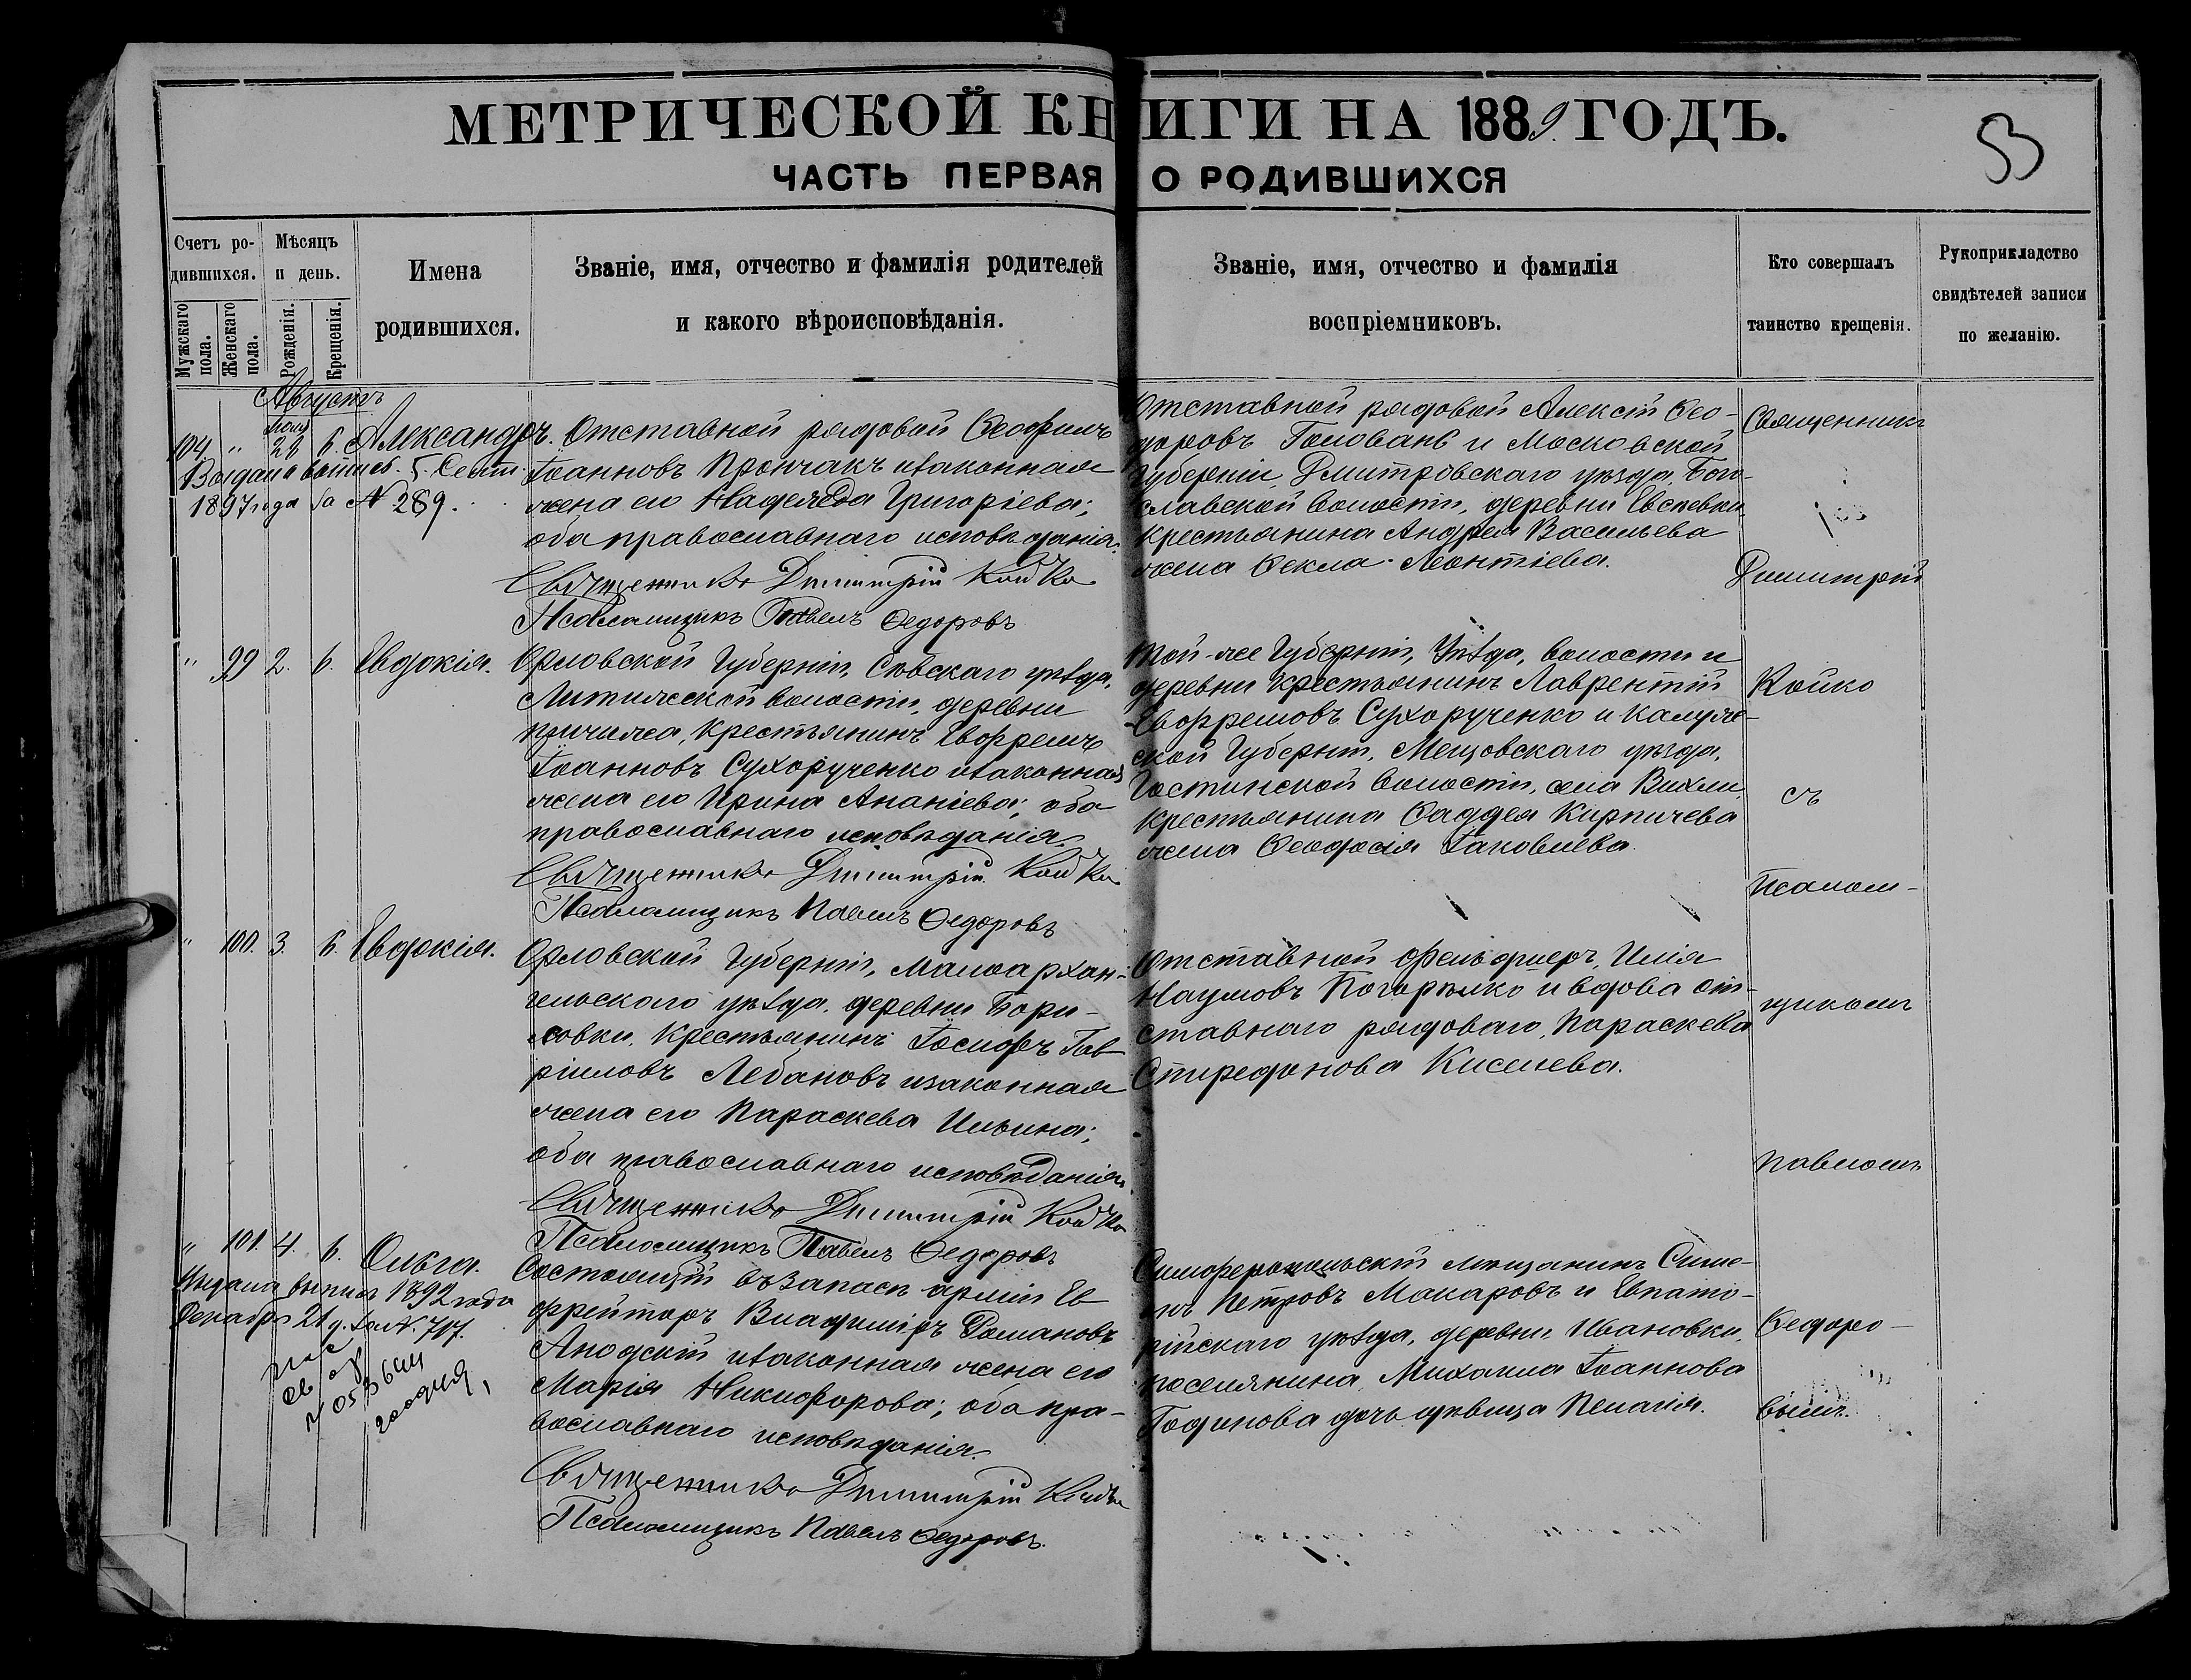 МЕТРИЧЕСКОЙ КНИГИ НА 1889 ГОДЪ.
53
ЧАСТЬ ПЕРВАЯ О РОДИВШИХСЯ
Счетъ ро-
дившихся.
Мужскаго пола.
Женскаго пола.
Мѣсяцъ
и день.
Рожденія.
Крещенія.
Имена
родившихся.
Званіе, имя, отчество и фамилія родителей
и какого вѣроисповѣданія.
Званіе, имя, отчество и фамилія
воспріемниковъ.
Кто совершалъ
таинство крещенія.
Рукоприкладство
свидѣтелей записи
по желанію.
Августъ
104. " 28 6. Александръ.
1897 года за № 289.
Отставной рядовой Ѳеофилъ
Іоанновъ Прончакъ и законная
жена его Надежда Григоріева;
оба православнаго исповѣданія.
Священникъ Димитрій Койко
Псаломщикъ Павелъ Ѳедоровъ
Отставной рядовой Алексій Ѳео-
доровъ Головань и Московской
Губерніи, Дмитровскаго уѣзда, Бого-
славской волости, деревни
крестьянина Андрея Васильева
жена Ѳекла Леонтіева.
" 99 2. 6. Евдокія.
Орловской Губерніи, Сѣвскаго уѣзда,
волости, деревни
крестьянинъ Евфремъ
Іоанновъ Сухорученко и законная
жена его Ирина Ананіева; оба
православнаго исповѣданія.
Священникъ Димитрій Койко
Псаломщикъ Павелъ Ѳедоровъ
Той-же Губерніи, Уѣзда, волости и
деревни крестьянинъ Лаврентій
Евфремовъ Сухорученко и Калуж-
ской Губерніи, Мещовскаго уѣзда,
волости, села
крестьянина Ѳаддея Кирпичева
жена Ѳеодосія Іаковлева.
" 100. 3. 6. Евдокія.
Орловской Губерніи, Малоархан-
гельскаго уѣзда, деревни Бори-
совки, крестьянинъ Іосифъ Гав-
ріиловъ Лебановъ и законная
жена его Параскева Ильина;
оба православнаго исповѣданія.
Священникъ Димитрій Койко
Псаломщикъ Павелъ Ѳедоровъ
Отставной фельдшеръ, Илія
Наумовъ Погорѣлко и вдова от-
ставнаго рядоваго, Параскева
Спиредонова Киселева.
" 101. 4. 6. Ольга.
Выдана выпись 1892 года
Декабря 21 д. за № 717.
Состоящій въ запасѣ арміи Еф
фрейторъ Владиміръ Романовъ
и законная жена его
Марія Никифорова; оба пра-
вославнаго исповѣданія.
Священникъ Димитрій Койко
Псаломщикъ Павелъ Ѳедоровъ.
Симферопольскій мѣщанинъ Симе-
онъ Петровъ Макаровъ и Евпато-
рійскаго уѣзда, деревни Ивановки,
поселянина, Михаила Іоаннова
Годинова дочь дѣвица Пелагія.
Священникъ
Димитрій
Койко
съ
Псалом-
щикомъ
Павломъ
Ѳедоро-
вымъ.